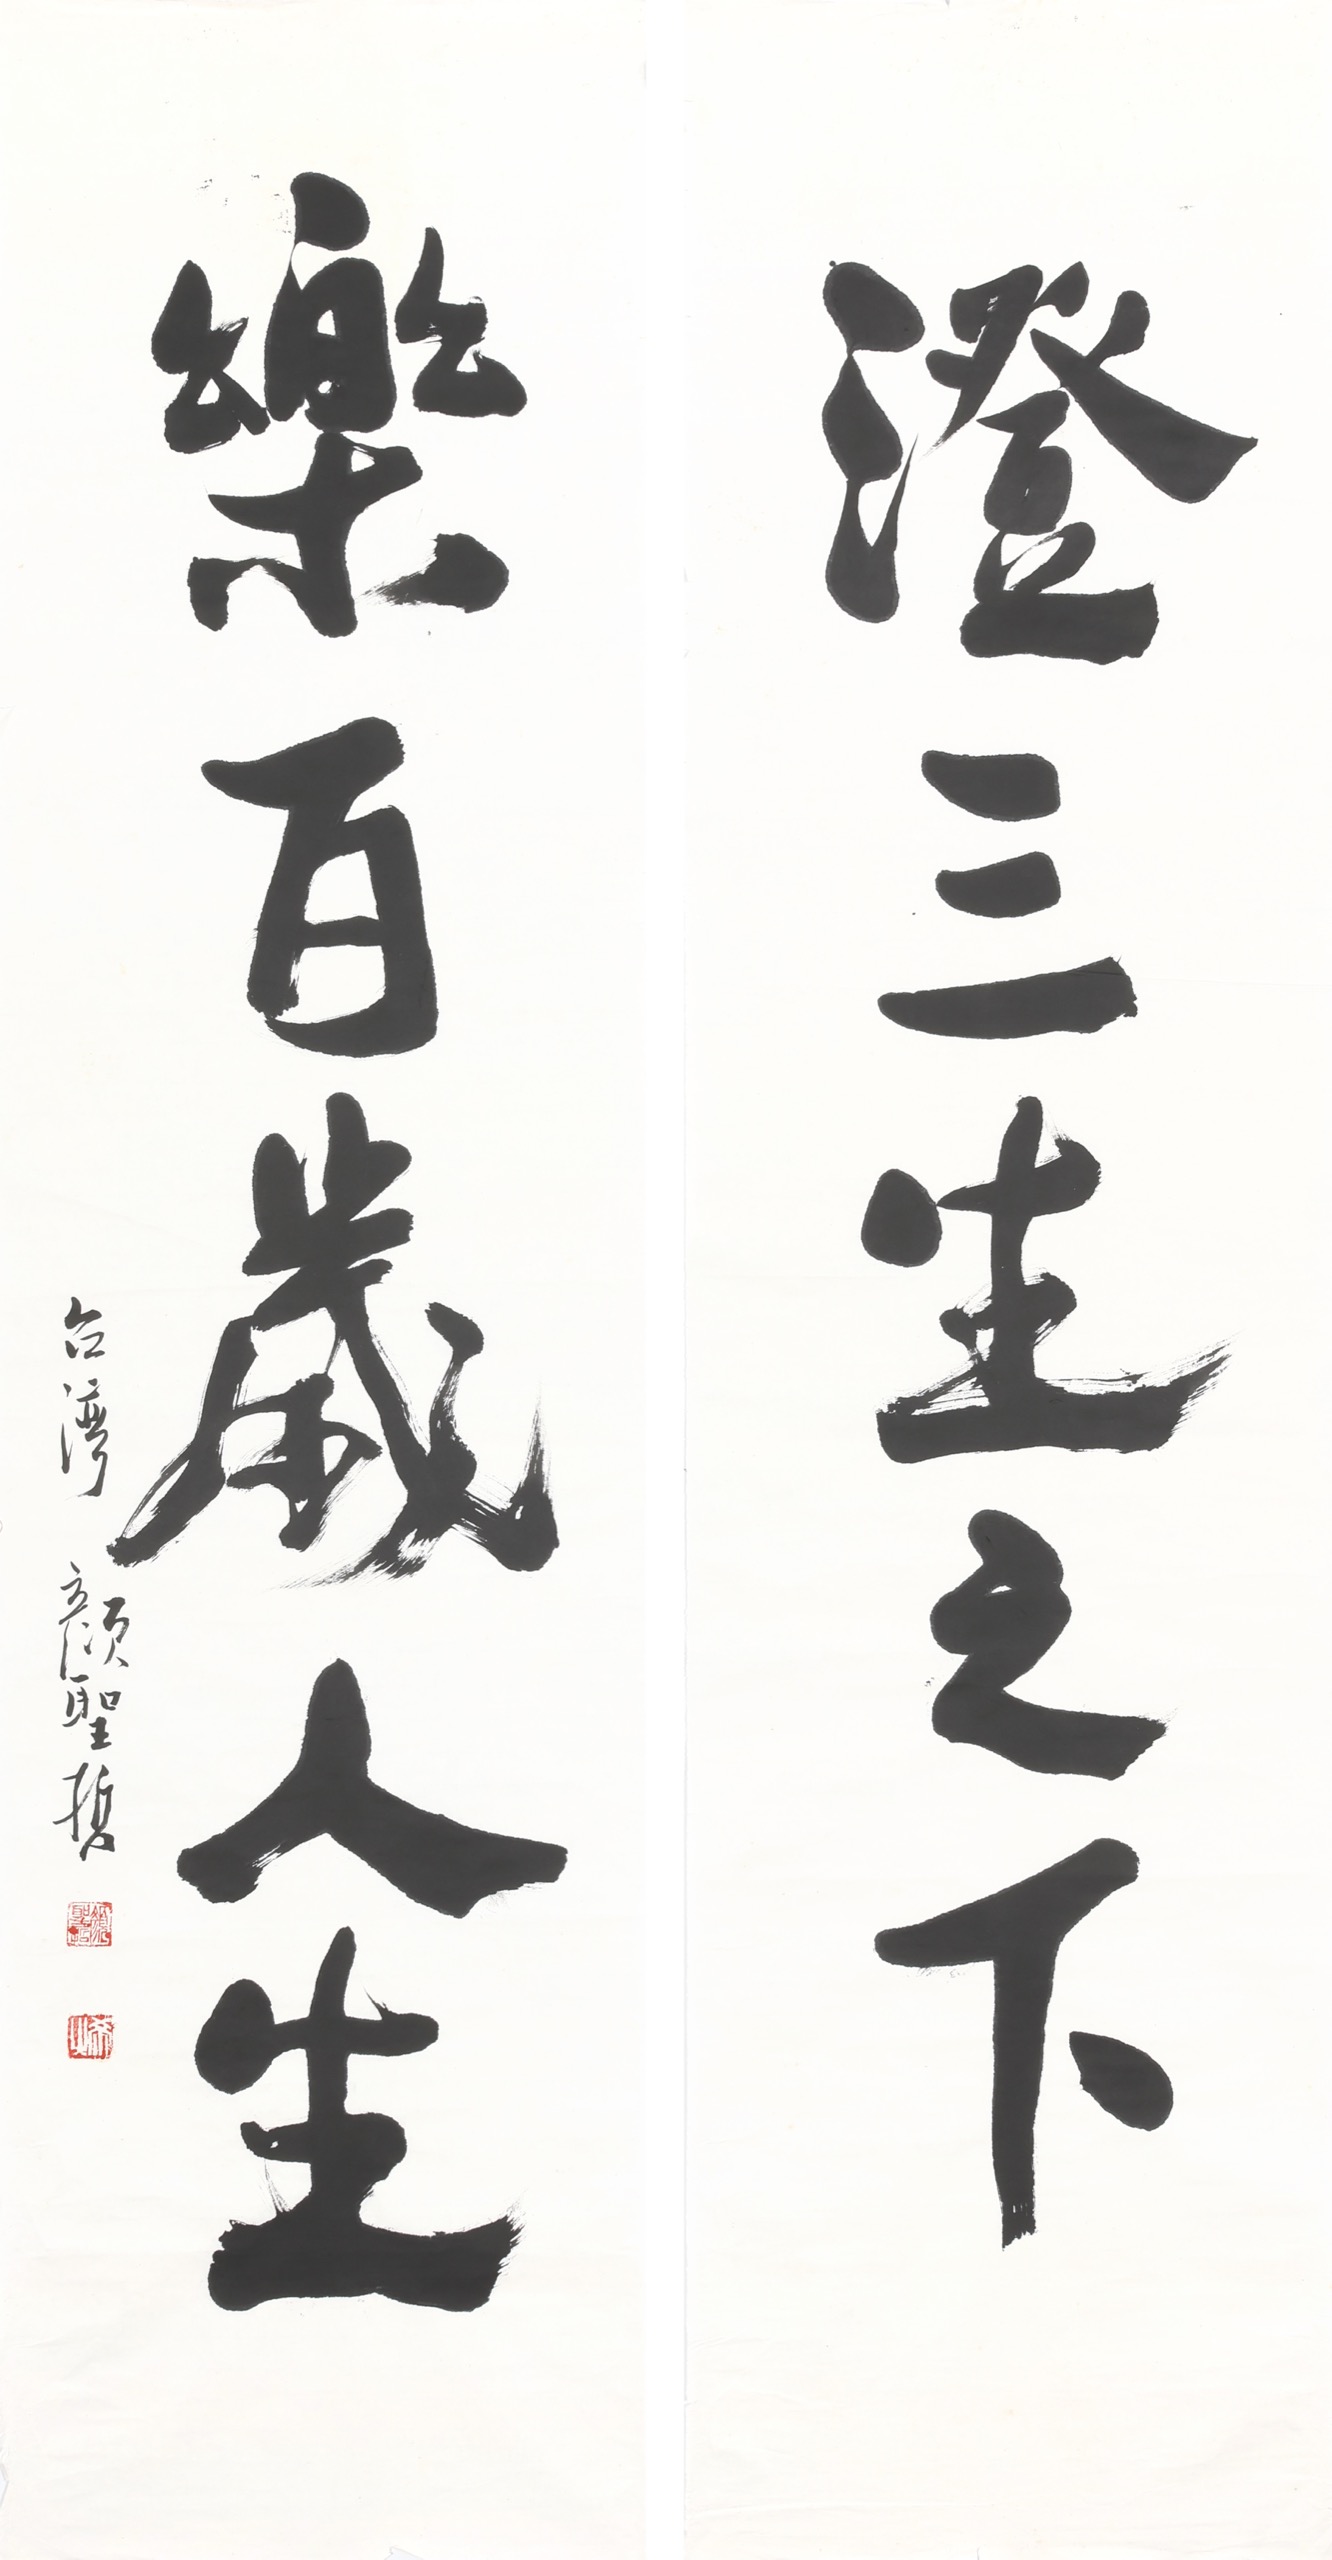 澄三生之下
樂百歲人生
台灣 顏聖哲